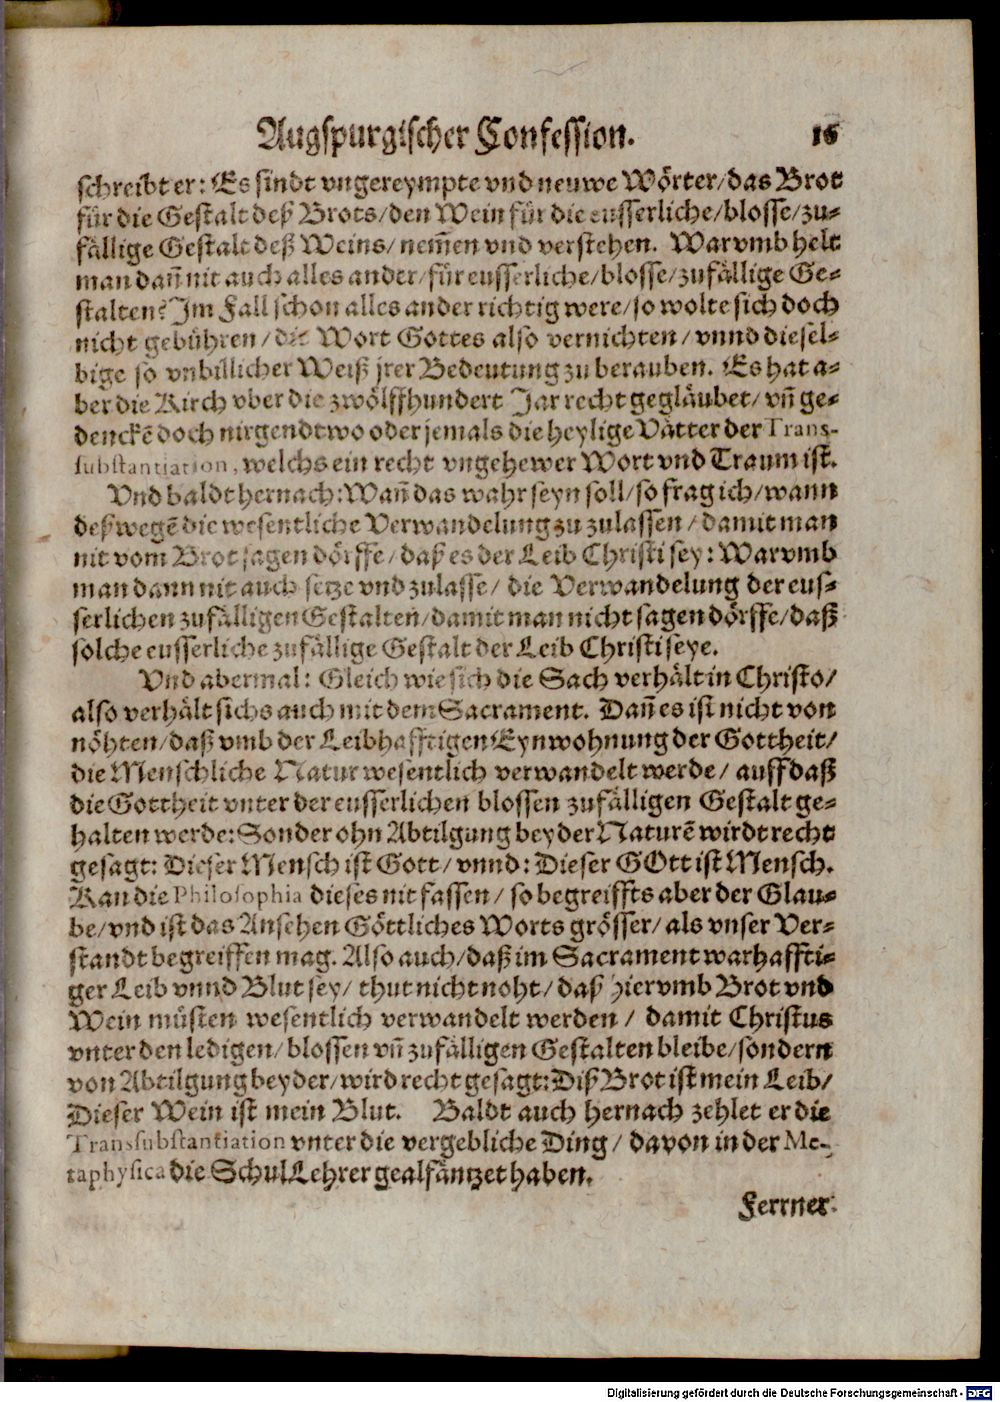 Augspurgischer Confession. 16
schreibt er: Es sindt vngereympte vnd neuwe Wörter/das Brot
für die Gestalt deß Brots/den Wein für die eusserliche/blosse/zu-
fällige Gestalt deß Weins/nem̃en vnd verstehen. Warvmb helt
man dañ nit auch alles ander/für eusserliche/blosse/zufällige Ge-
stalten? Im Fall schon alles ander richtig were/so wolte sich doch
nicht gebühren/die Wort Gottes also vernichten/vnnd diesel-
bige so vnbillicher Weiß jrer Bedeutung zu berauben. Es hat a-
ber die Kirch vber die zwölffhundert Jar recht gegläubet/vñ ge-
denckẽ doch nirgendtwo oder jemals die heylige Vätter der Trans-
substantiation, welchs ein recht vngehewer Wort vnd Traum ist.
Vnd baldt hernach: Wañ das wahr seyn soll/so frag ich/wann
deßwegẽ die wesentliche Verwandelung zu zulassen/damit man
nit vom Brot sagen dörffe/daß es der Leib Christi sey: Warvmb
man dann nit auch setze vnd zulasse/die Verwandelung der eus-
serlichen zufälligen Gestalten/damit man nicht sagen dörffe/daß
solche eusserliche zufällige Gestalt der Leib Christi seye.
Vnd abermal: Gleich wie sich die Sach verhält in Christo/
also verhält sichs auch mit dem Sacrament. Dañ es ist nicht von
nöhten/daß vmb der Leibhafftigen Eynwohnung der Gottheit/
die Menschliche Natur wesentlich verwandelt werde/auff daß
die Gottheit vnter der eusserlichen blossen zufälligen Gestalt ge-
halten werde: Sonder ohn Abtilgung beyder Naturẽ wirdt recht
gesagt: Dieser Mensch ist Gott/vnnd: Dieser GOtt ist Mensch.
Kan die Philosophia dieses nit fassen/so begreiffts aber der Glau-
be/vnd ist das Ansehen Göttliches Worts grösser/als vnser Ver-
standt begreiffen mag. Also auch/daß im Sacrament warhaffti-
ger Leib vnnd Blut sey/thut nicht noht/daß hiervmb Brot vnd
Wein müsten wesentlich verwandelt werden/damit Christus
vnter den ledigen/blossen vñ zufälligen Gestalten bleibe/sondern
von Abtilgung beyder/wird recht gesagt: Diß Brot ist mein Leib/
Dieser Wein ist mein Blut. Baldt auch hernach zehlet er die
Transsubstantiation vnter die vergebliche Ding/davon in der Me-
taphysica die SchulLehrer gealfäntzet haben.
Ferrner:
Digitalisierung gefördert durch die Deutsche Forschungsgemeinschaft - DFG